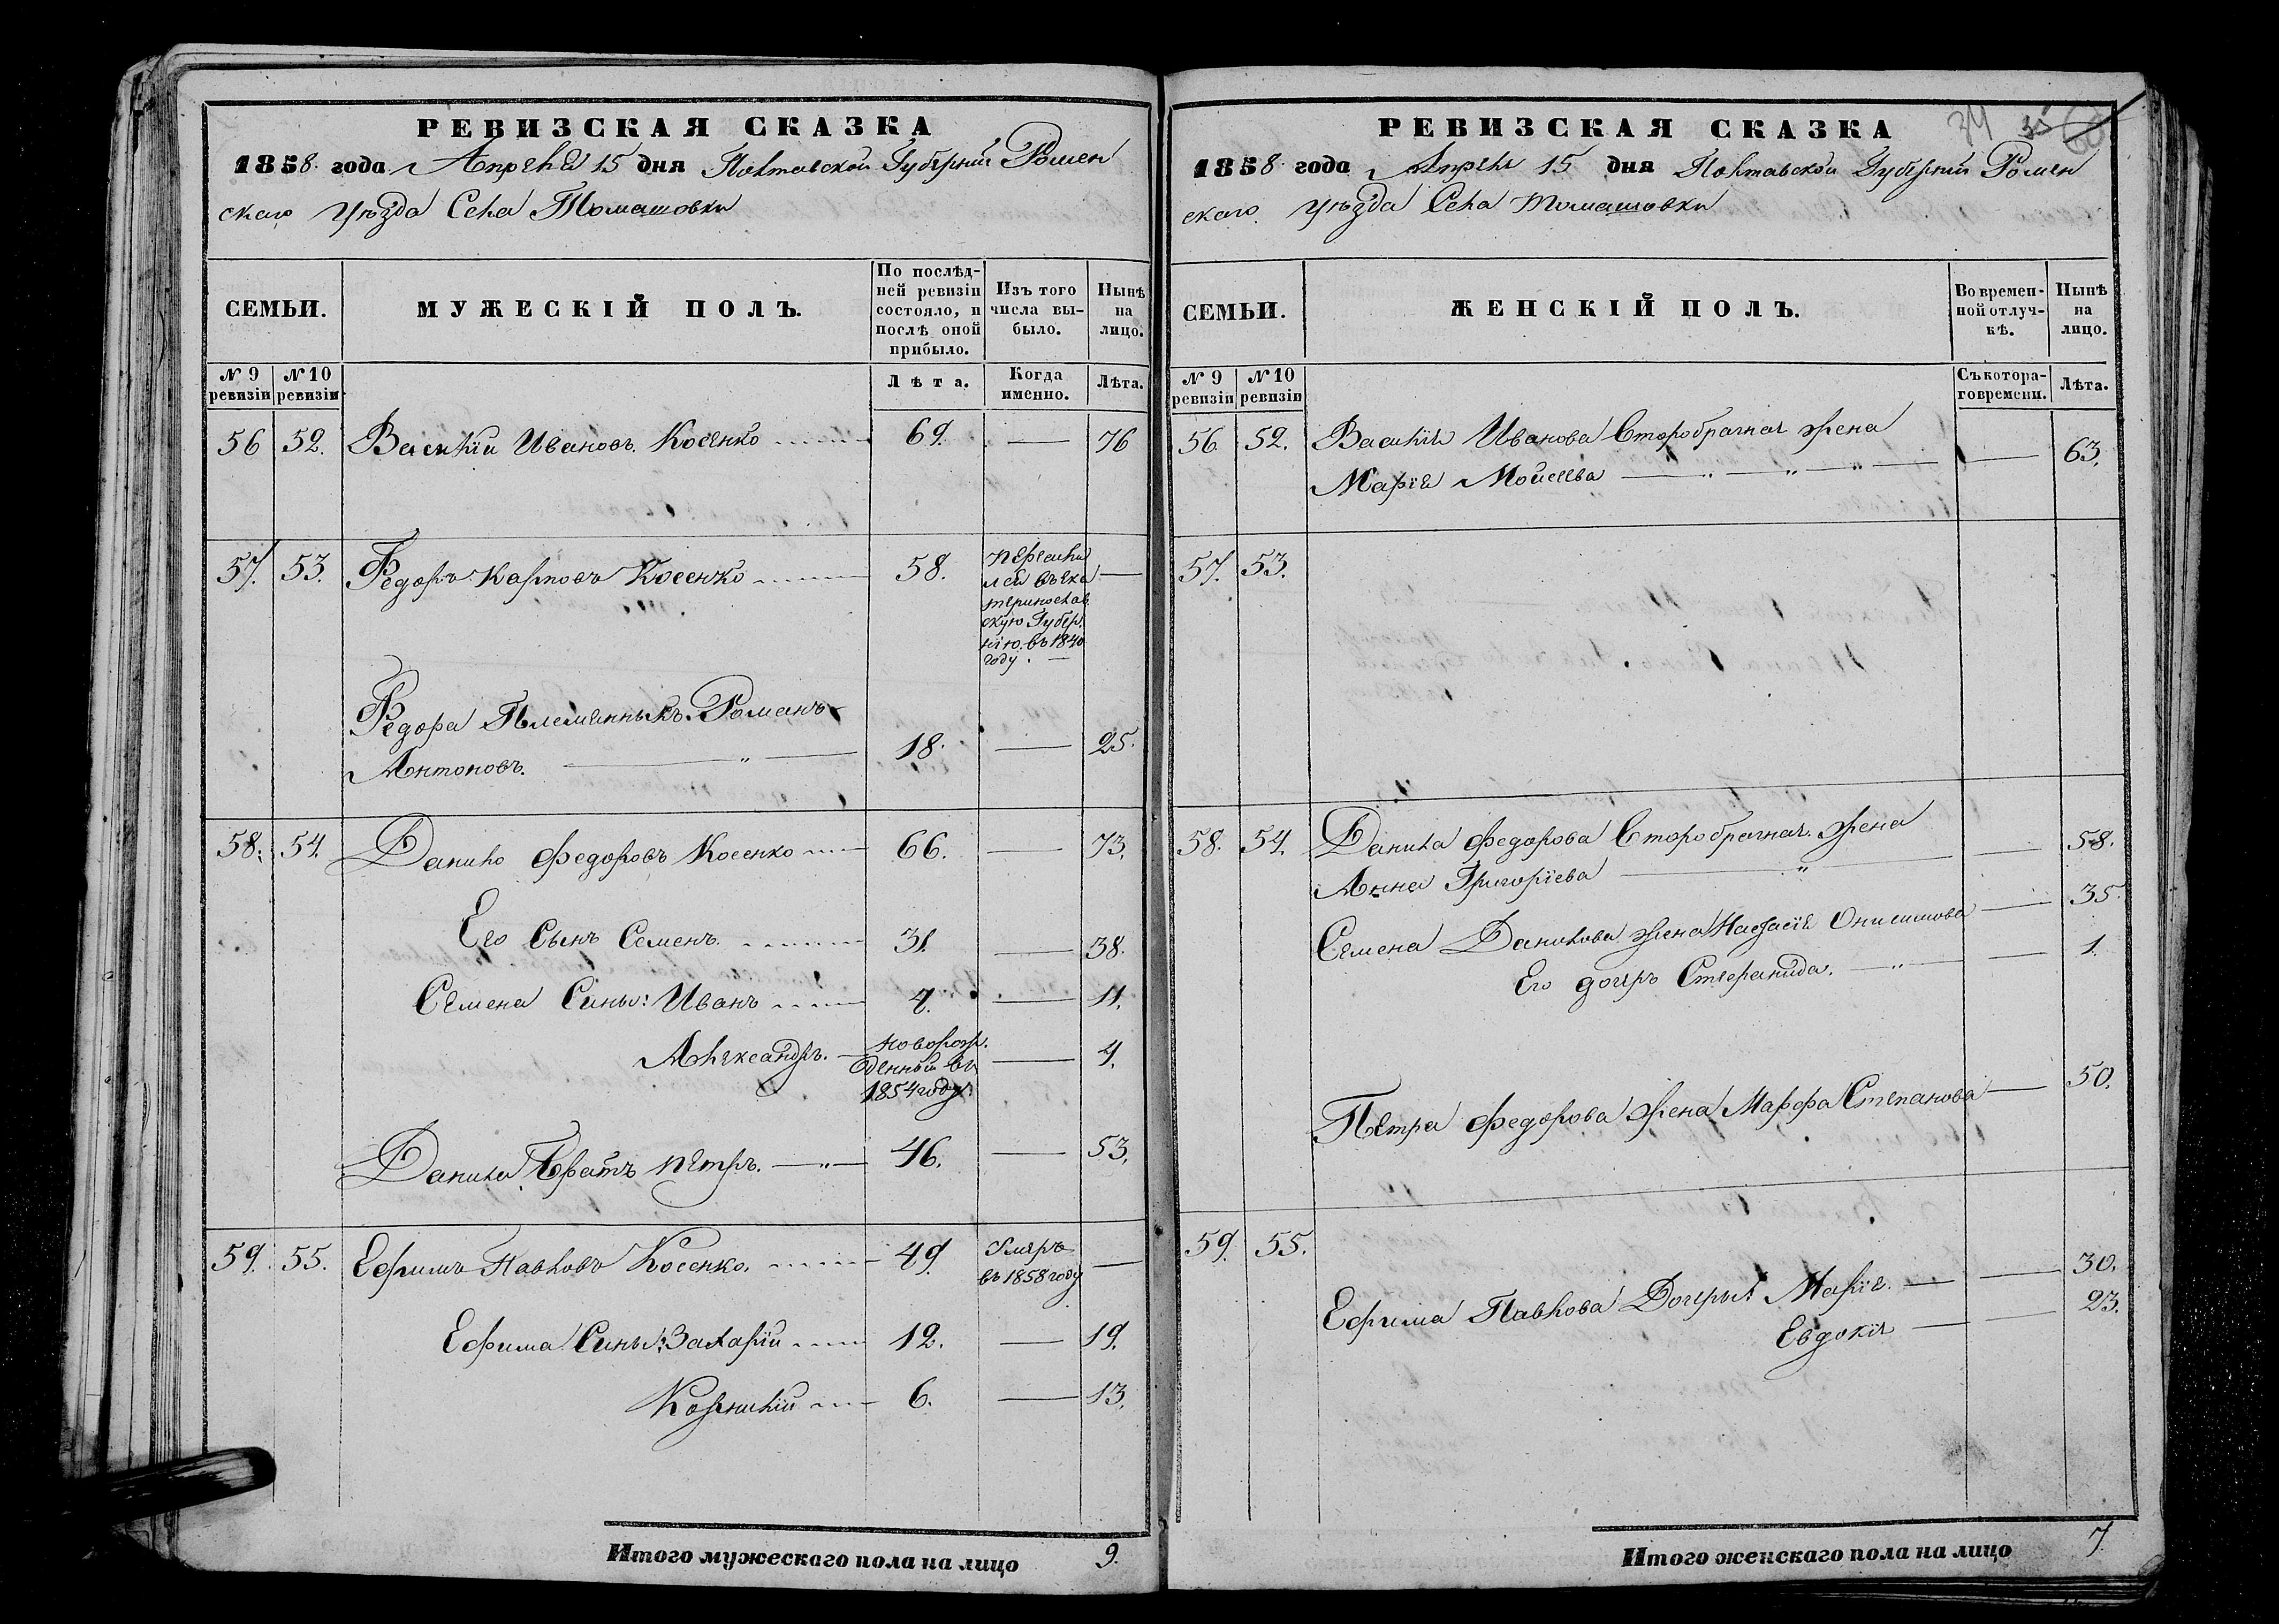 РЕВИЗСКАЯ СКАЗКА
1858 года Апреля 15 дня Полтавской Губерніи Ромен
скаго Уѣзда Села Томашовки
СЕМЬИ.
МУЖЕСКІЙ ПОЛЪ.
По послѣд-
ней ревизіи
состояло, и
послѣ оной
прибыло.
Изъ того
числа вы-
было.
Нынѣ
на
лицо.
№ 9
ревизіи
№ 10
ревизіи
Лѣта.
Когда
именно.
Лѣта.
56 52. Василій Ивановъ Косенко 69. — 76
57. 53. Федоръ Карповъ Косенко 58. —
Пересили
лся въ Ека
теринослав.
скую Губер.
нію въ 1840
году.
Федора Племянникъ Романъ
Антоновъ. 18. — 25.
58. 54. Данило Федоровъ Косенко 66. — 73.
Его Сынъ Семенъ. 31. — 38.
Семена Сины: Иванъ 4. — 11.
Александръ. Новорож.
денный въ
1854 году. — 4.
Данила Братъ Петръ. 46. — 53.
59. 55. Ефимъ Павловъ Косенко. 49. Умеръ
въ 1858 году —
Ефима Сины: Захарій 12. — 19.
Корнилій 6. — 13.
Итого мужескаго пола на лицо 9.
34 35
РЕВИЗСКАЯ СКАЗКА
1858 года Апреля 15 дня Полтавской Губерніи Ромен
скаго Уѣзда Села Томашовки
СЕМЬИ.
ЖЕНСКІЙ ПОЛЪ.
Во времен-
ной отлуч-
кѣ.
Нынѣ
на
лицо.
№ 9
ревизіи
№ 10
ревизіи
Съ котора-
го времени.
Лѣта.
56. 52. Василія Иванова Второбрачная жена
Марія Мойсеева — 63.
57. 53.
58. 54. Данила Федорова Второбрачная жена
Анна Григоріева — 58.
Семена Данилова жена Настасія Онисимова — 35.
Его дочеръ Стефанида. — 1.
Петра Федорова жена Марфа Степанова — 50.
59. 55.
Ефима Павлова Дочеры: Марія. — 30.
Евдокія — 23.
Итого женскаго пола на лицо 7.